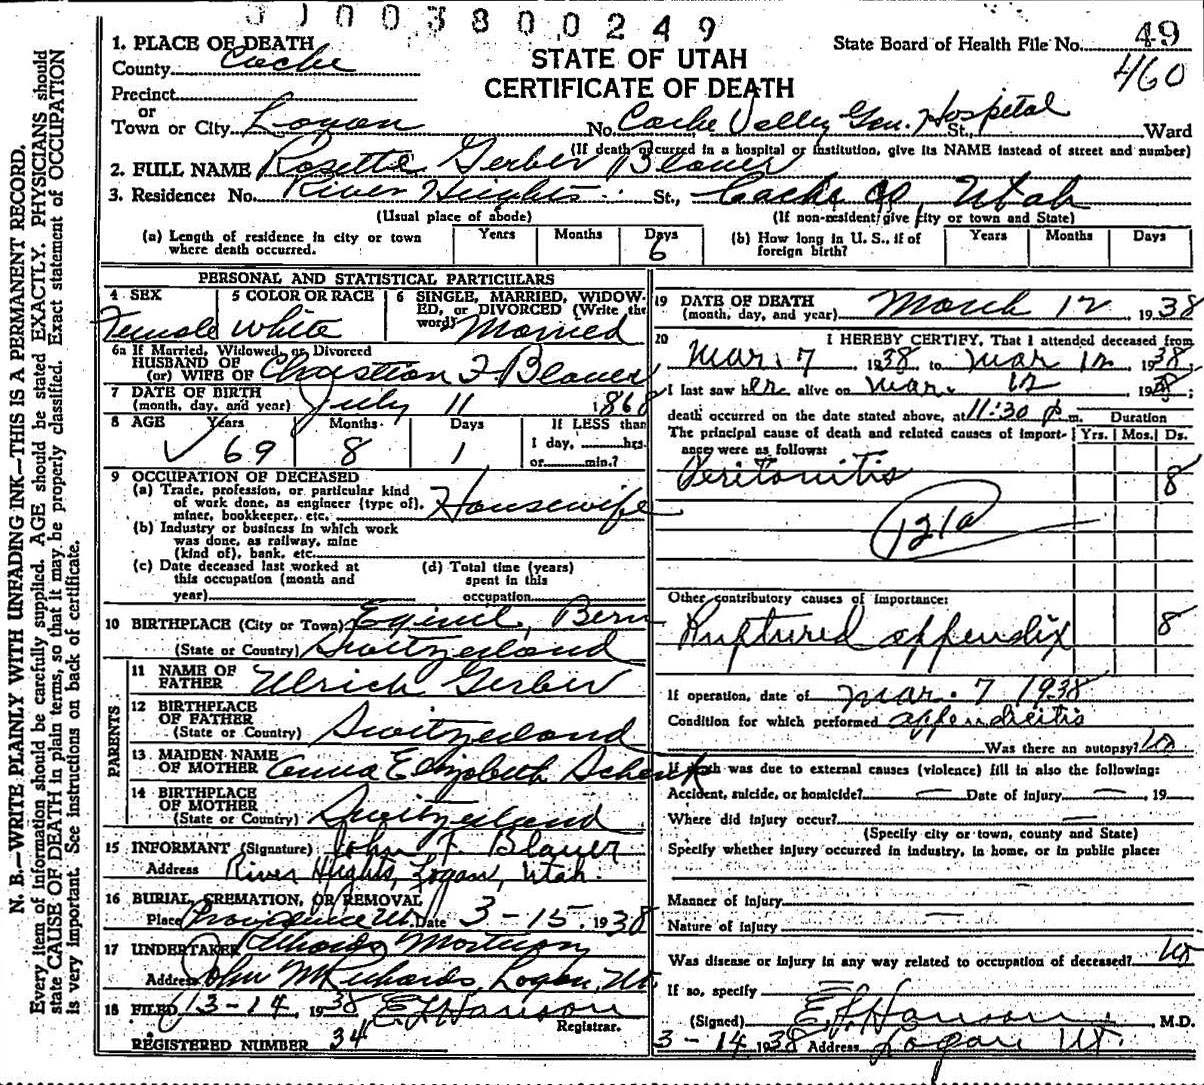 01003800249
1. PLACE OF DEATH
County Cache
Precinct
or
Town or City Logan No. Cache Valley Gen. Hospital St., Ward
(If death occurred in a hospital or institution, give its NAME instead of street and number)
STATE OF UTAH
CERTIFICATE OF DEATH
State Board of Health File No. 49
460
2. FULL NAME Rosette Gerber Blauer
3. Residence: No. River Heights St., Cache Co, Utah
(Usual place of abode) (If non-resident give city or town and State)
(a) Length of residence in city or town where death occurred. Years Months Days 6
(b) How long in U. S., if of foreign birth? Years Months Days
PERSONAL AND STATISTICAL PARTICULARS
4 SEX Female
5 COLOR OR RACE White
6 SINGLE, MARRIED, WIDOWED, or DIVORCED (Write the word) Married
6a If Married, Widowed, or Divorced
HUSBAND OF
(or) WIFE OF Christian F Blauer
7 DATE OF BIRTH
(month, day, and year) July 11 1868
8 AGE Years 69 Months 8 Days 1 If LESS than
1 day, hrs.
or min.?
9 OCCUPATION OF DECEASED
(a) Trade, profession, or particular kind
of work done, as engineer (type of),
miner, bookkeeper, etc. Housewife
(b) Industry or business in which work
was done, as railway, mine
(kind of), bank, etc.
(c) Date deceased last worked at
this occupation (month and
year)
(d) Total time (years)
spent in this
occupation
10 BIRTHPLACE (City or Town) Bern
(State or Country) Switzerland
PARENTS
11 NAME OF
FATHER Ulrich Gerber
12 BIRTHPLACE
OF FATHER
(State or Country) Switzerland
13 MAIDEN NAME
OF MOTHER Anna Elizabeth Schenk
14 BIRTHPLACE
OF MOTHER
(State or Country) Switzerland
15 INFORMANT (Signature) John F Blauer
Address River Heights, Logan, Utah.
16 BURIAL, CREMATION, OR REMOVAL
Place Providence Ut. Date 3-15. 1938
17 UNDERTAKER Richards Mortuary
Address John M Richards, Logan, Ut.
18 FILED 3-14 1938 E L Hanson
Registrar.
REGISTERED NUMBER 34
19 DATE OF DEATH
(month, day, and year) March 12, 1938
20 I HEREBY CERTIFY, That I attended deceased from
Mar. 7 1938 to Mar 12, 1938,
I last saw her alive on Mar. 12 1938;
death occurred on the date stated above, at 11:30 p m.
Duration
The principal cause of death and related causes of importance were as follows: Yrs. Mos. Ds.
Peritonitis 8
121a
Other contributory causes of importance:
Ruptured appendix 8
If operation, date of Mar. 7 1938
Condition for which performed appendicitis
Was there an autopsy? no
If death was due to external causes (violence) fill in also the following:
Accident, suicide, or homicide? — Date of injury — , 19
Where did injury occur? —
(Specify city or town, county and State)
Specify whether injury occurred in industry, in home, or in public place:
—
Manner of injury
Nature of injury —
Was disease or injury in any way related to occupation of deceased? no
If so, specify —
(Signed) E L Hanson, M.D.
3-14 1938 Address Logan Ut.
N. B.—WRITE PLAINLY WITH UNFADING INK—THIS IS A PERMANENT RECORD.
Every item of information should be carefully supplied. AGE should be stated EXACTLY. PHYSICIANS should
state CAUSE OF DEATH in plain terms, so that it may be properly classified. Exact statement of OCCUPATION
is very important. See instructions on back of certificate.